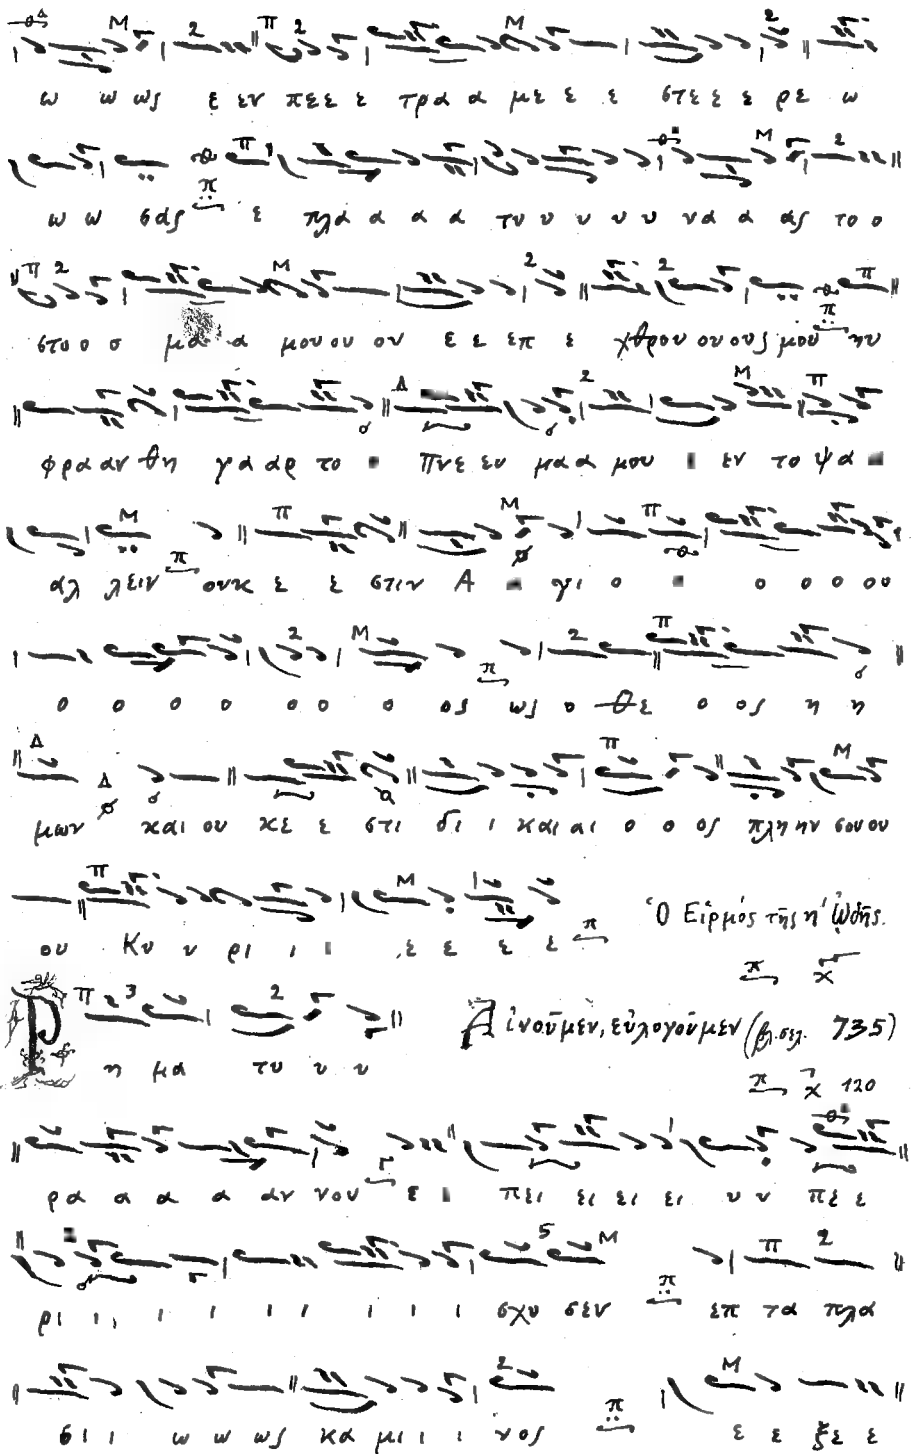 ω ω ως ε εν πεε ε τρα α με ε ε ε στε ε ε ρε ω
ω ω σας ε πλα α α α τυ υ υ υ υ να α ας το ο
στο ο ο μα α μου ου ου ε ε επ ε χθρου ου ους μου ηυ
φρα αν θη γα αρ το πνε ευ μα α μου εν το ψα
αλ λειν ουκ ε ε στιν Α γι ο ο ο ο ου
ο ο ο ο ο ο ο ος ως ο Θε ο ος η η
μων και ου κε ε στι δι ι και αι ο ο ος πλη ην σου ου
ου Κυ υ ρι ι ι ε ε ε ε
Ὁ Εἱρμός τῆς η´ ᾠδῆς.
Ρ η μα τυ υ υ
Αἰνοῦμεν, εὐλογοῦμεν (βλ. σελ. 735)
120
ρα α α α αν νου ε πει ει ει ει υν πε ε
ρι ι ι ι ι ι ι ι ι ι σχυ σεν επ τα πλα
σι ι ι ω ω ως κα μι ι ι νος ε ε ξε ε